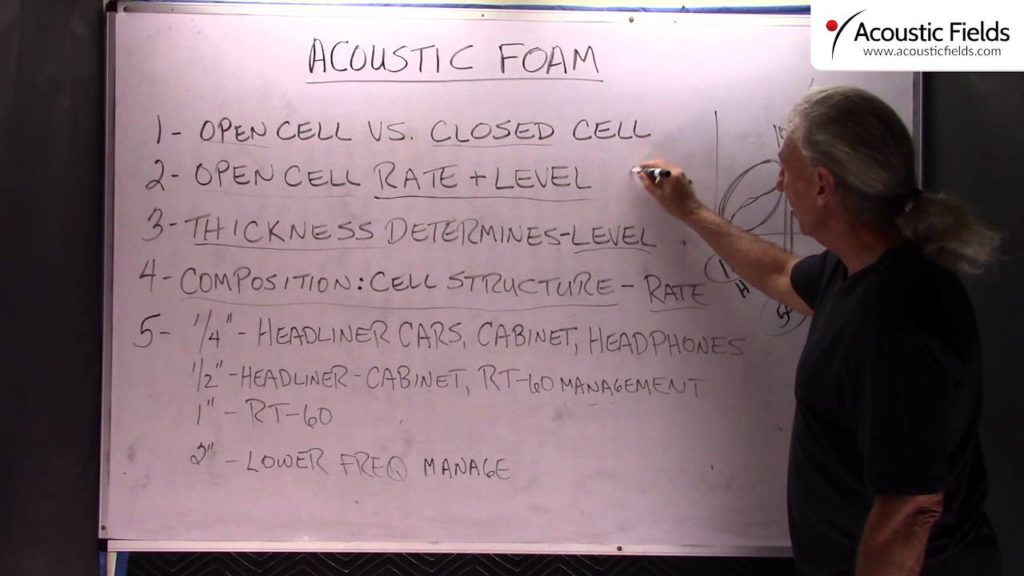 Acoustic Fields
www.acousticfields.com
ACOUSTIC FOAM
1- OPEN CELL VS. CLOSED CELL
2- OPEN CELL RATE + LEVEL
3- THICKNESS DETERMINES-LEVEL
4- COMPOSITION: CELL STRUCTURE - RATE
5- 1/4" - HEADLINER CARS, CABINET, HEADPHONES
1/2" - HEADLINER - CABINET, RT-60 MANAGEMENT
1" - RT-60
2" - LOWER FREQ MANAGE